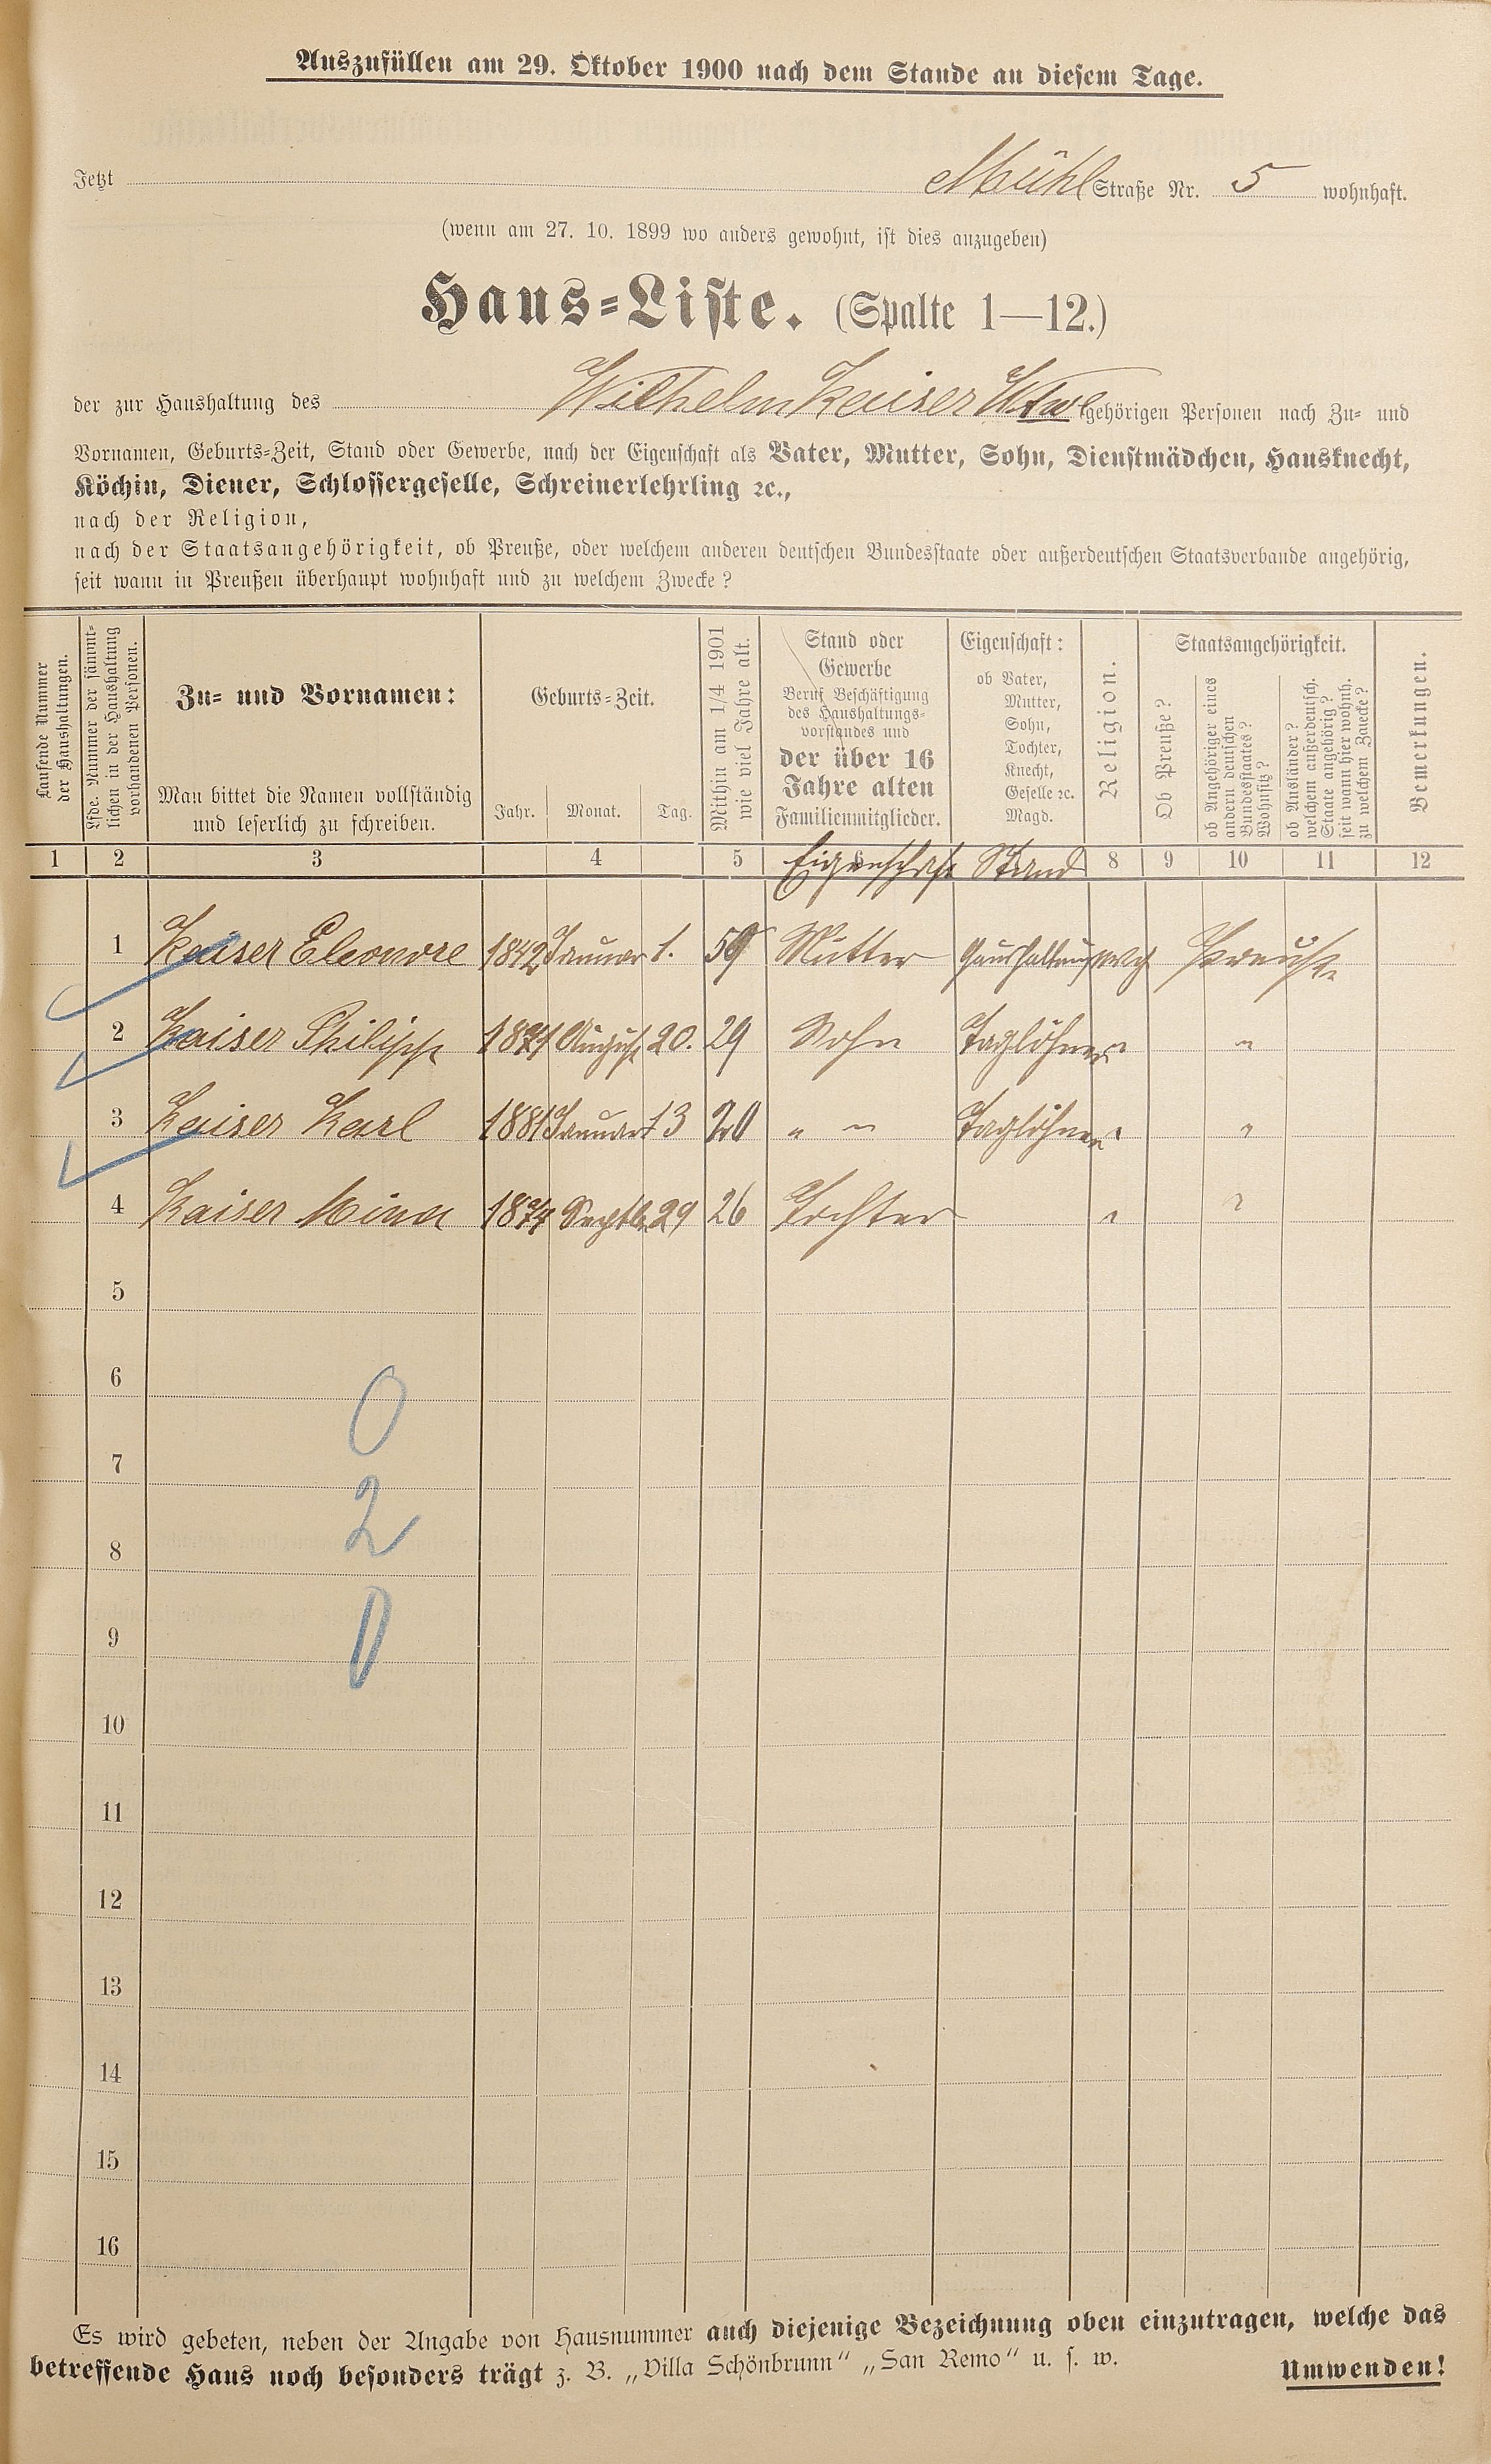 Auszufüllen am 29. Oktober 1900 nach dem Stande an diesem Tage.
Jetzt Mühl Straße Nr. 5 wohnhaft.
(wenn am 27. 10. 1899 wo anders gewohnt, ist dies anzugeben)
Haus-Liste. (Spalte 1—12.)
der zur Haushaltung des Wilhelm Kaiser Wtwe gehörigen Personen nach Zu- und
Vornamen, Geburts-Zeit, Stand oder Gewerbe, nach der Eigenschaft als Vater, Mutter, Sohn, Dienstmädchen, Hausknecht,
Köchin, Diener, Schlossergeselle, Schreinerlehrling ꝛc.,
nach der Religion,
nach der Staatsangehörigkeit, ob Preuße, oder welchem anderen deutschen Bundesstaate oder außerdeutschen Staatsverbande angehörig,
seit wann in Preußen überhaupt wohnhaft und zu welchem Zwecke?
Laufende Nummer
der Haushaltungen.
Lfde. Nummer der sämmt-
lichen in der Haushaltung
vorhandenen Personen.
Zu- und Vornamen:
Man bittet die Namen vollständig
und leserlich zu schreiben.
Geburts-Zeit.
Jahr. Monat. Tag.
Mithin am 1/4 1901
wie viel Jahre alt.
Stand oder
Gewerbe
Beruf Beschäftigung
des Haushaltungs-
vorstandes und
der über 16
Jahre alten
Familienmitglieder.
Eigenschaft:
ob Vater,
Mutter,
Sohn,
Tochter,
Knecht,
Geselle ꝛc.
Magd.
Religion.
Staatsangehörigkeit.
Ob Preuße?
ob Angehöriger eines
andern deutschen
Bundesstaates?
Wohnsitz?
ob Ausländer?
welchem außerdeutsch.
Staate angehörig?
seit wann hier wohnh.
zu welchem Zwecke?
Bemerkungen.
1 2 3 4 5 Eigenschaft Stand 8 9 10 11 12
1 Kaiser Eleonore 1842 Januar 1. 59 Mutter Haushaltung evg Preuße
2 Kaiser Philipp 1871 August 20. 29 Sohn Taglöhner " "
3 Kaiser Karl 1881 Januar 13 20 " " Taglöhner " "
4 Kaiser Mina 1874 Septbr 29 26 Tochter " "
5
6
0
7
2
8
9
0
10
11
12
13
14
15
16
Es wird gebeten, neben der Angabe von Hausnummer auch diejenige Bezeichnung oben einzutragen, welche das
betreffende Haus noch besonders trägt z. B. „Villa Schönbrunn“ „San Remo“ u. s. w.
Umwenden!